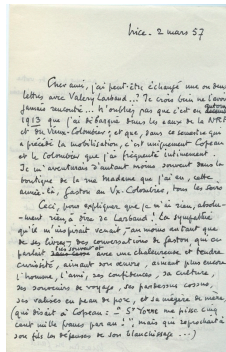 Nice - 2 mars 57
Cher ami, j'ai peut-être échangé une ou deux
lettres avec Valery Larbaud...? Je crois bien ne l'avoir
jamais rencontré... N'oubliez pas que c'est en
1913 que j'ai débarqué dans les eaux de la NRF
et du Vieux-Colombier; et que, dans ce semestre qui
a précédé la mobilisation, c'est uniquement Copeau
et le Colombier que j'ai fréquenté intimement.
Je m'aventurais d'autant moins souvent dans la
boutique de la rue Madame que j'ai eu, cette
année-là, Gaston au Vx-Colombier, tous les soirs
Ceci, pour expliquer que je n'ai rien, absolu-
-ment rien, à dire de Larbaud! La sympathie
qu'il m'inspirait venait, au moins autant que
de ses livres, des conversations de Gaston qui en
parlait très souvent avec une chaleureuse et tendre
curiosité, aimant son œuvre, aimant plus encore
l'homme, l'ami, ses confidences, sa culture,
ses souvenirs de voyages, ses
ses valises en peau de porc, et sa mégère de mère,
(qui disait à Copeau : " St Yorre me pisse cinq
cent mille francs par an! ", mais qui reprochait à
son fils les dépenses de son blanchissage...)